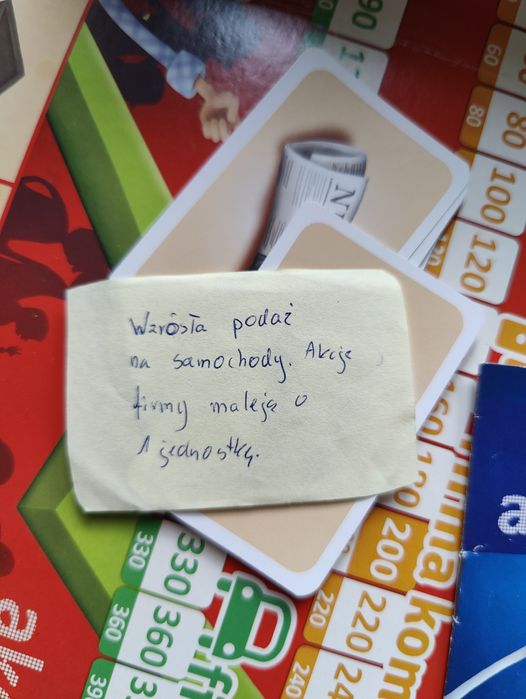 90
60
80
80
100
100
120
120
Wzrósła podaż
na samochody. Akcje
firmy maleją o
1 jednostkę.
160
180
200
200
220
220
240
330
330
360
360
firma kom